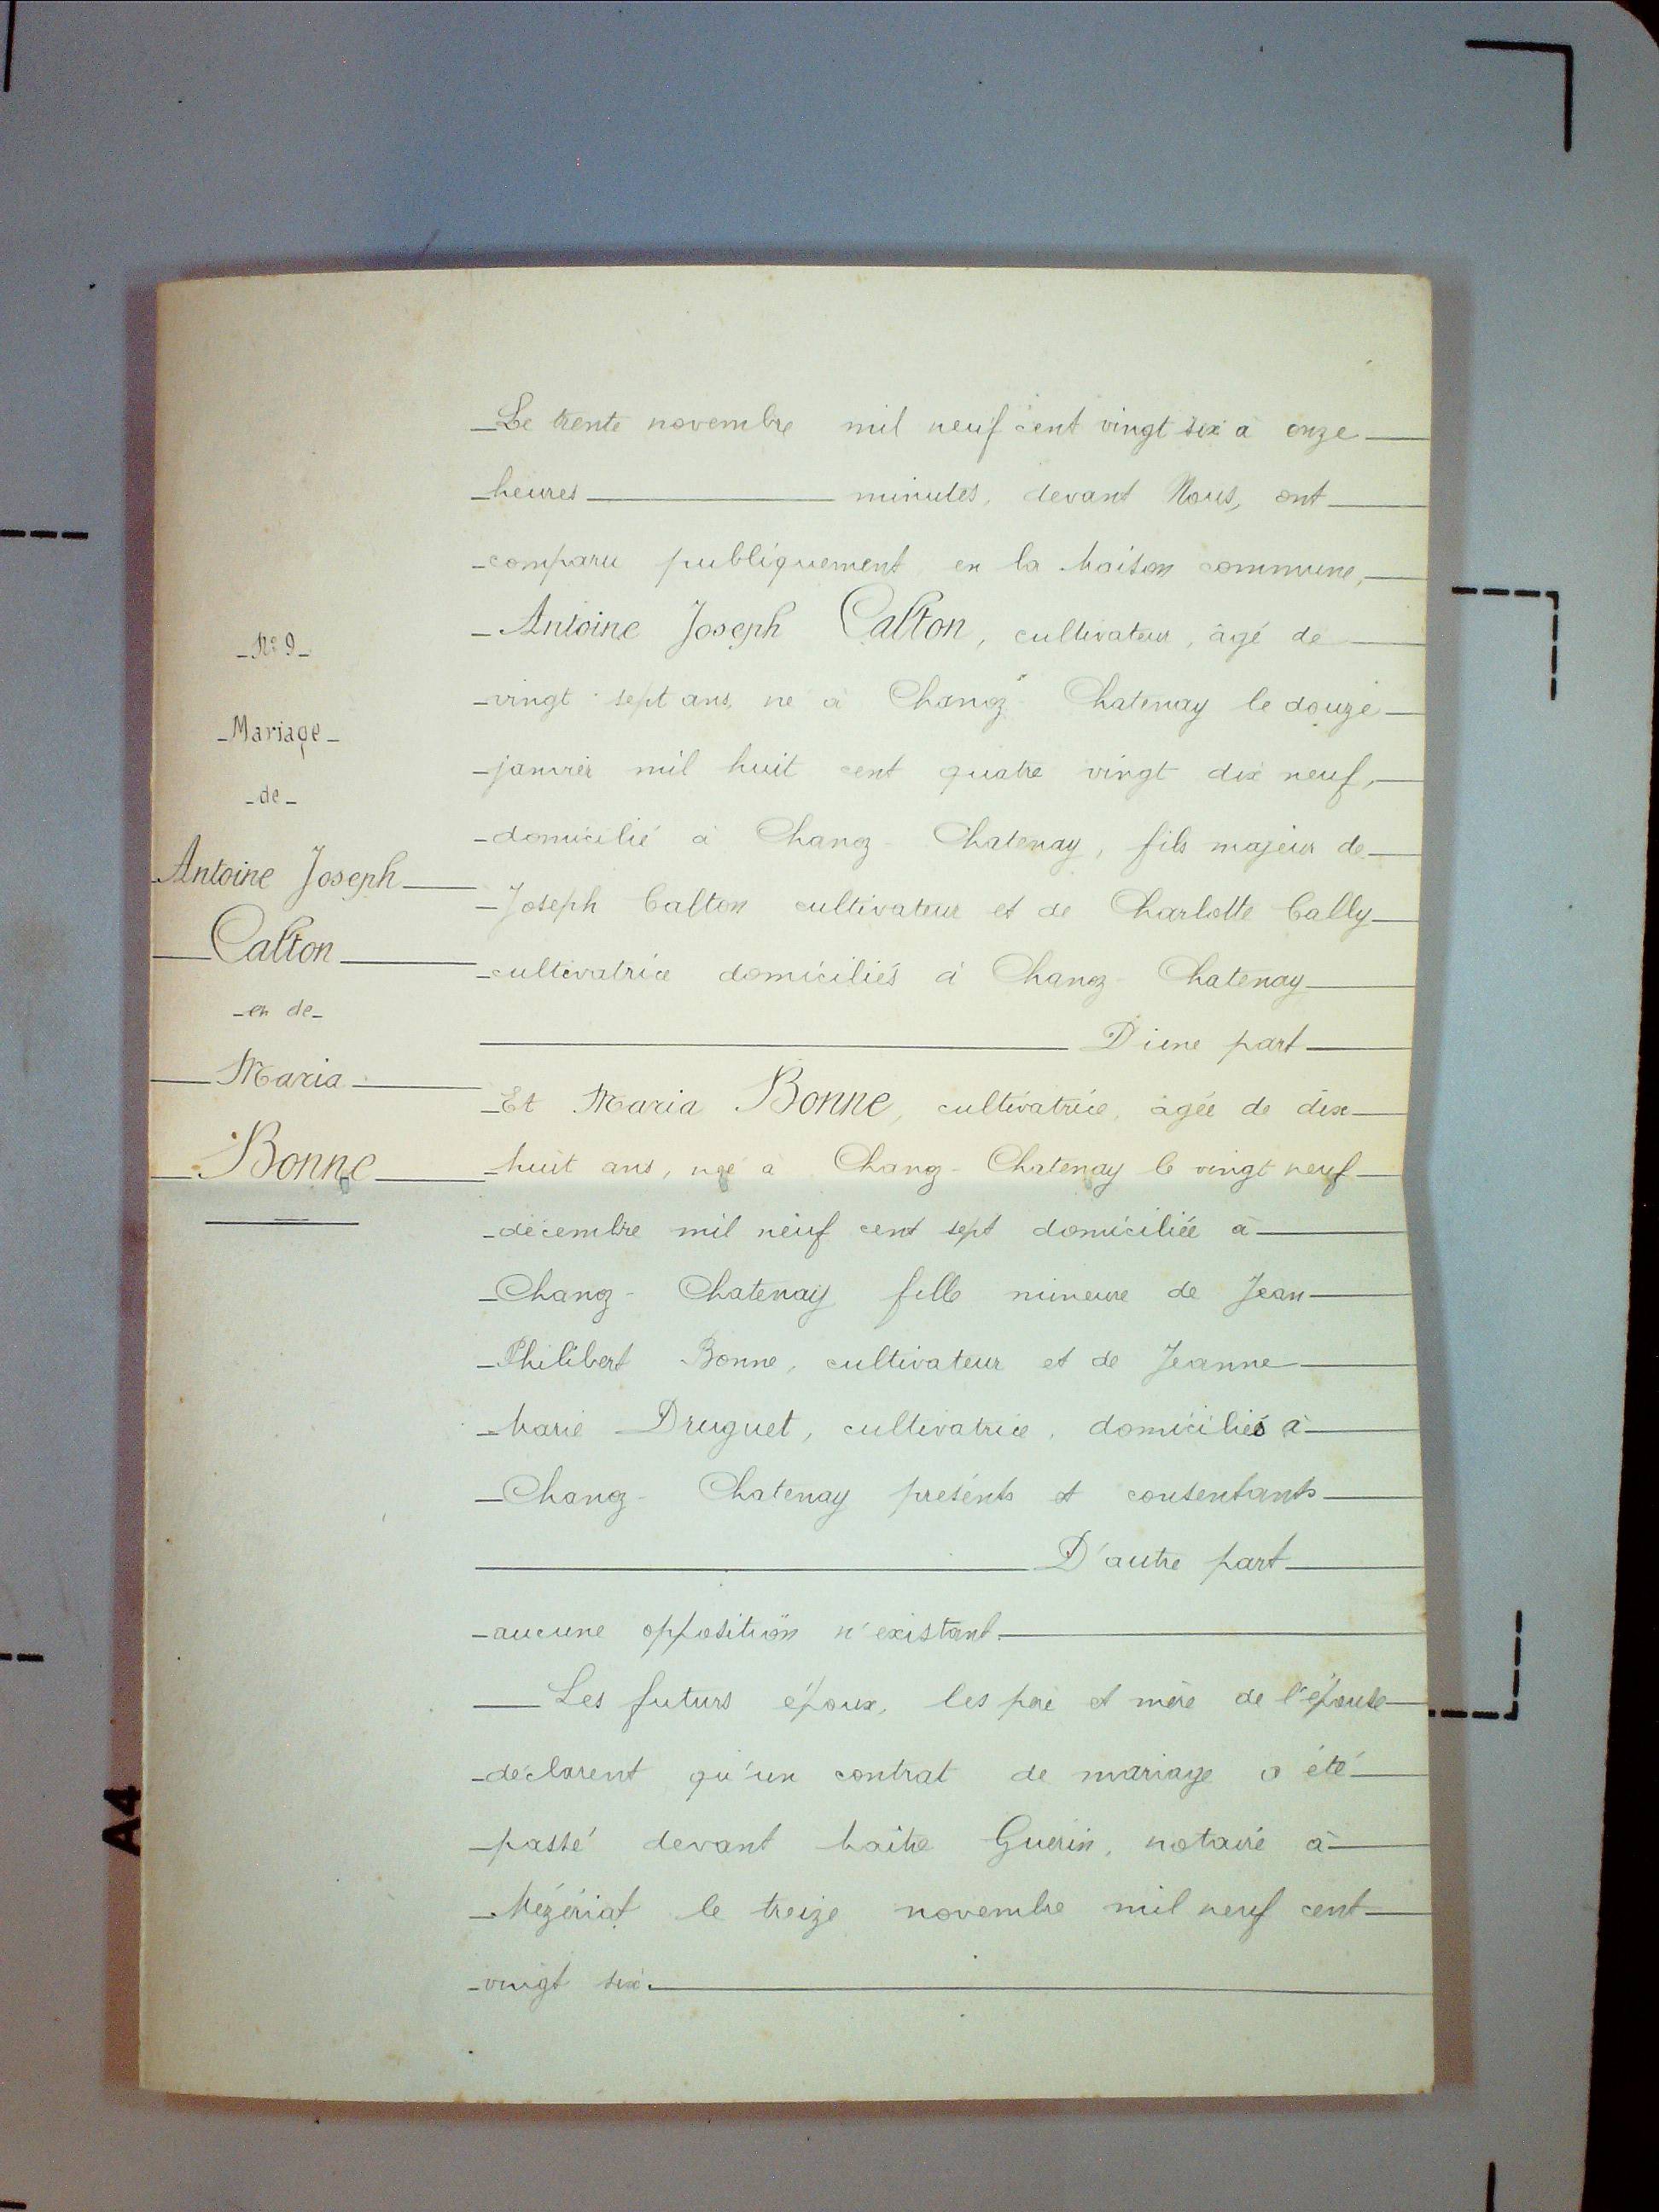 Le trente novembre mil neuf cent vingt six à onze
heures minutes, devant Nous, ont
comparu publiquement en la Maison commune,
Antoine Joseph Calton, cultivateur, âgé de
vingt sept ans, né à Chanoz Chatenay le douze
janvier mil huit cent quatre vingt dix neuf,
domicilié à Chanoz - Chatenay, fils majeur de
Joseph Calton cultivateur et de Charlotte Cally
cultivatrice domiciliés à Chanoz - Chatenay
D'une part
Et Maria Bonne, cultivatrice, âgée de dix
huit ans, née à Chanoz - Chatenay le vingt neuf
décembre mil neuf cent sept domiciliée à
Chanoz - Chatenay fille mineure de Jean
Philibert Bonne, cultivateur et de Jeanne
Marie Druguet, cultivatrice, domiciliés à
Chanoz - Chatenay présents et consentants
D'autre part
aucune opposition n'existant.
Les futurs époux, les père et mère de l'épouse
déclarent qu'un contrat de mariage a été
passé devant Maître Guérin, notaire à
Mézériat le treize novembre mil neuf cent
vingt six.
N° 9
Mariage
de
Antoine Joseph
Calton
et de
Maria
Bonne
A4